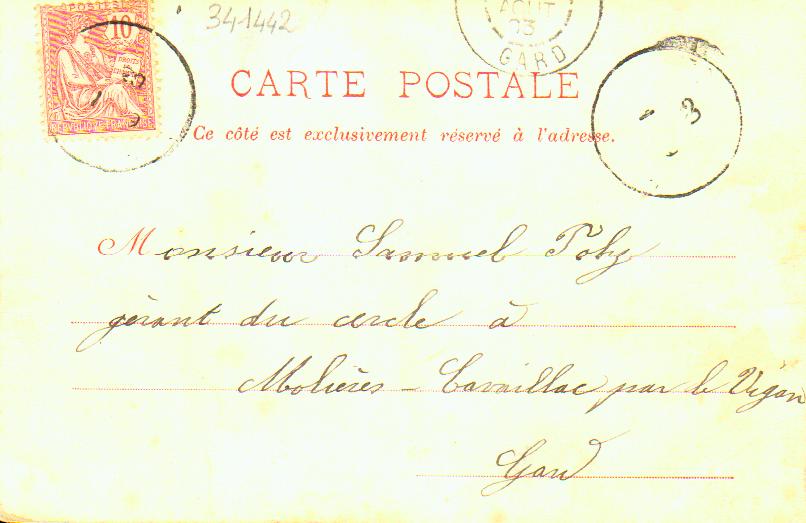 POSTES
10
DROITS
RÉPUBLIQUE FRANÇAISE
341442
AOUT
03
GARD
3
CARTE POSTALE
Ce côté est exclusivement réservé à l'adresse.
Monsieur Samuel
gérant du cercle à
Molières - Cavaillac par le Vigan
Gard